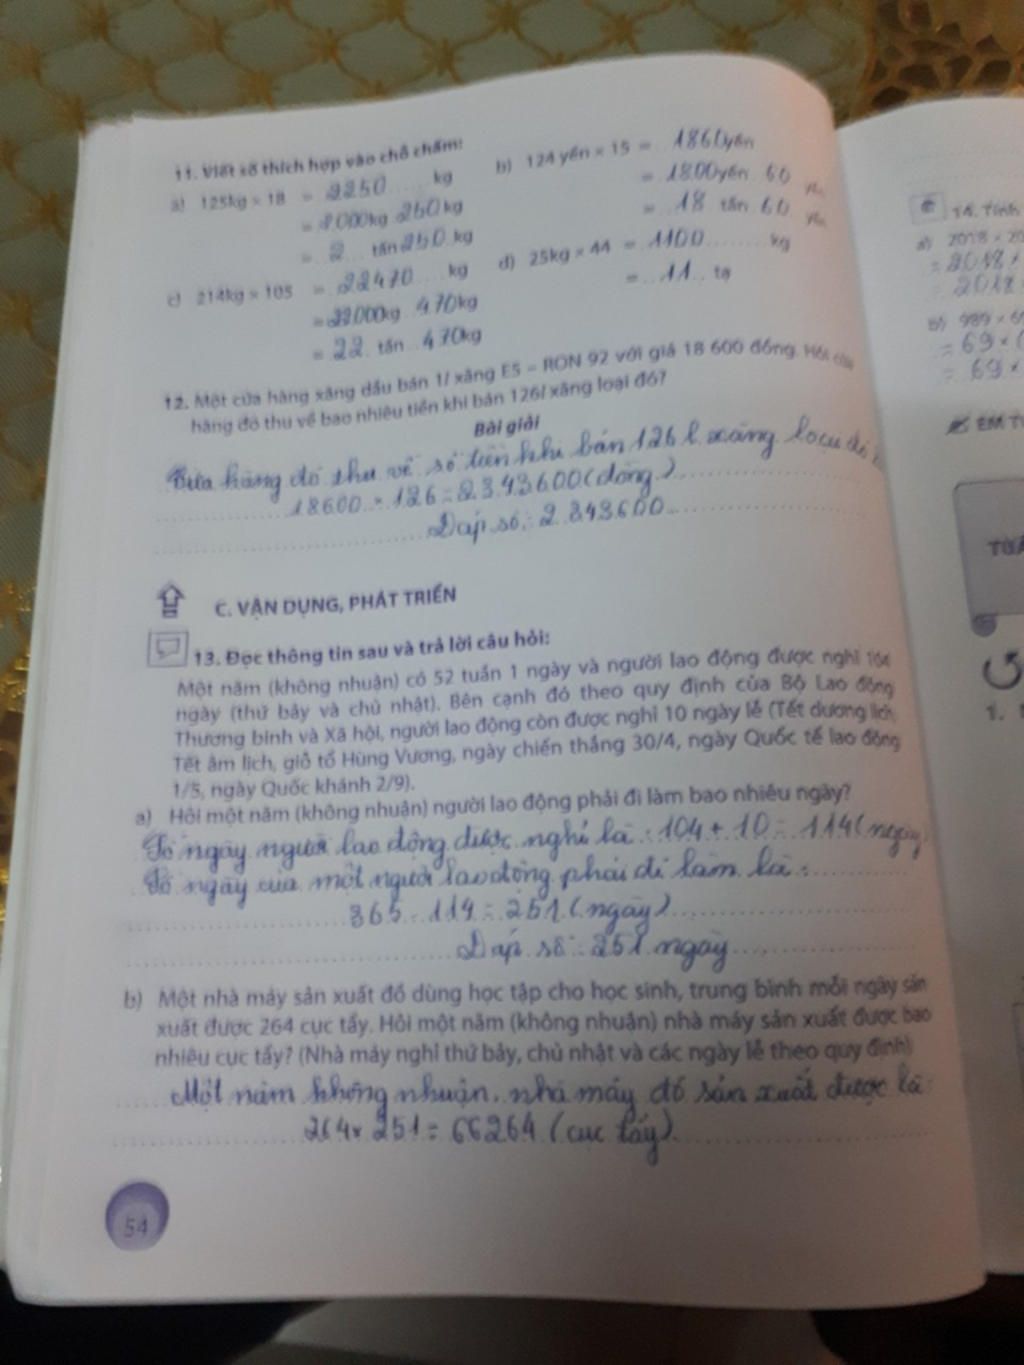 11. Viết số thích hợp vào chỗ chấm:
a) 125kg × 18 = 2250 kg
= 2000kg 250 kg
= 2 tấn 250 kg
b) 124 yến × 15 = 1860 yến
= 1800 yến 60 yến
= 18 tấn 60 yến
c) 214kg × 105 = 22470 kg
= 22000kg 470kg
= 22 tấn 470kg
d) 25kg × 44 = 1100 kg
= 11 tạ
12. Một cửa hàng xăng dầu bán 1l xăng E5 – RON 92 với giá 18 600 đồng. Hỏi cửa
hàng đó thu về bao nhiêu tiền khi bán 126l xăng loại đó?
Bài giải
Cửa hàng đó thu về số tiền khi bán 126 l xăng loại đó
18600 × 126 = 2343600 (đồng)
Đáp số: 2 343600
C. VẬN DỤNG, PHÁT TRIỂN
13. Đọc thông tin sau và trả lời câu hỏi:
Một năm (không nhuận) có 52 tuần 1 ngày và người lao động được nghỉ 104
ngày (thứ bảy và chủ nhật). Bên cạnh đó theo quy định của Bộ Lao động
Thương binh và Xã hội, người lao động còn được nghỉ 10 ngày lễ (Tết dương lịch,
Tết âm lịch, giỗ tổ Hùng Vương, ngày chiến thắng 30/4, ngày Quốc tế lao động
1/5, ngày Quốc khánh 2/9).
a) Hỏi một năm (không nhuận) người lao động phải đi làm bao nhiêu ngày?
Số ngày người lao động được nghỉ là : 104 + 10 = 114 (ngày)
Số ngày của một người lao động phải đi làm là :
365 - 114 = 251 (ngày)
Đáp số : 251 ngày
b) Một nhà máy sản xuất đồ dùng học tập cho học sinh, trung bình mỗi ngày sản
xuất được 264 cục tẩy. Hỏi một năm (không nhuận) nhà máy sản xuất được bao
nhiêu cục tẩy? (Nhà máy nghỉ thứ bảy, chủ nhật và các ngày lễ theo quy định)
Một năm không nhuận, nhà máy đó sản xuất được là:
264 × 251 = 66264 (cục tẩy)
54
14. Tính
a) 2018 × 20
= 2018 ×
= 2018
b) 989 × 69
= 69 ×
= 69 ×
EM T
1.